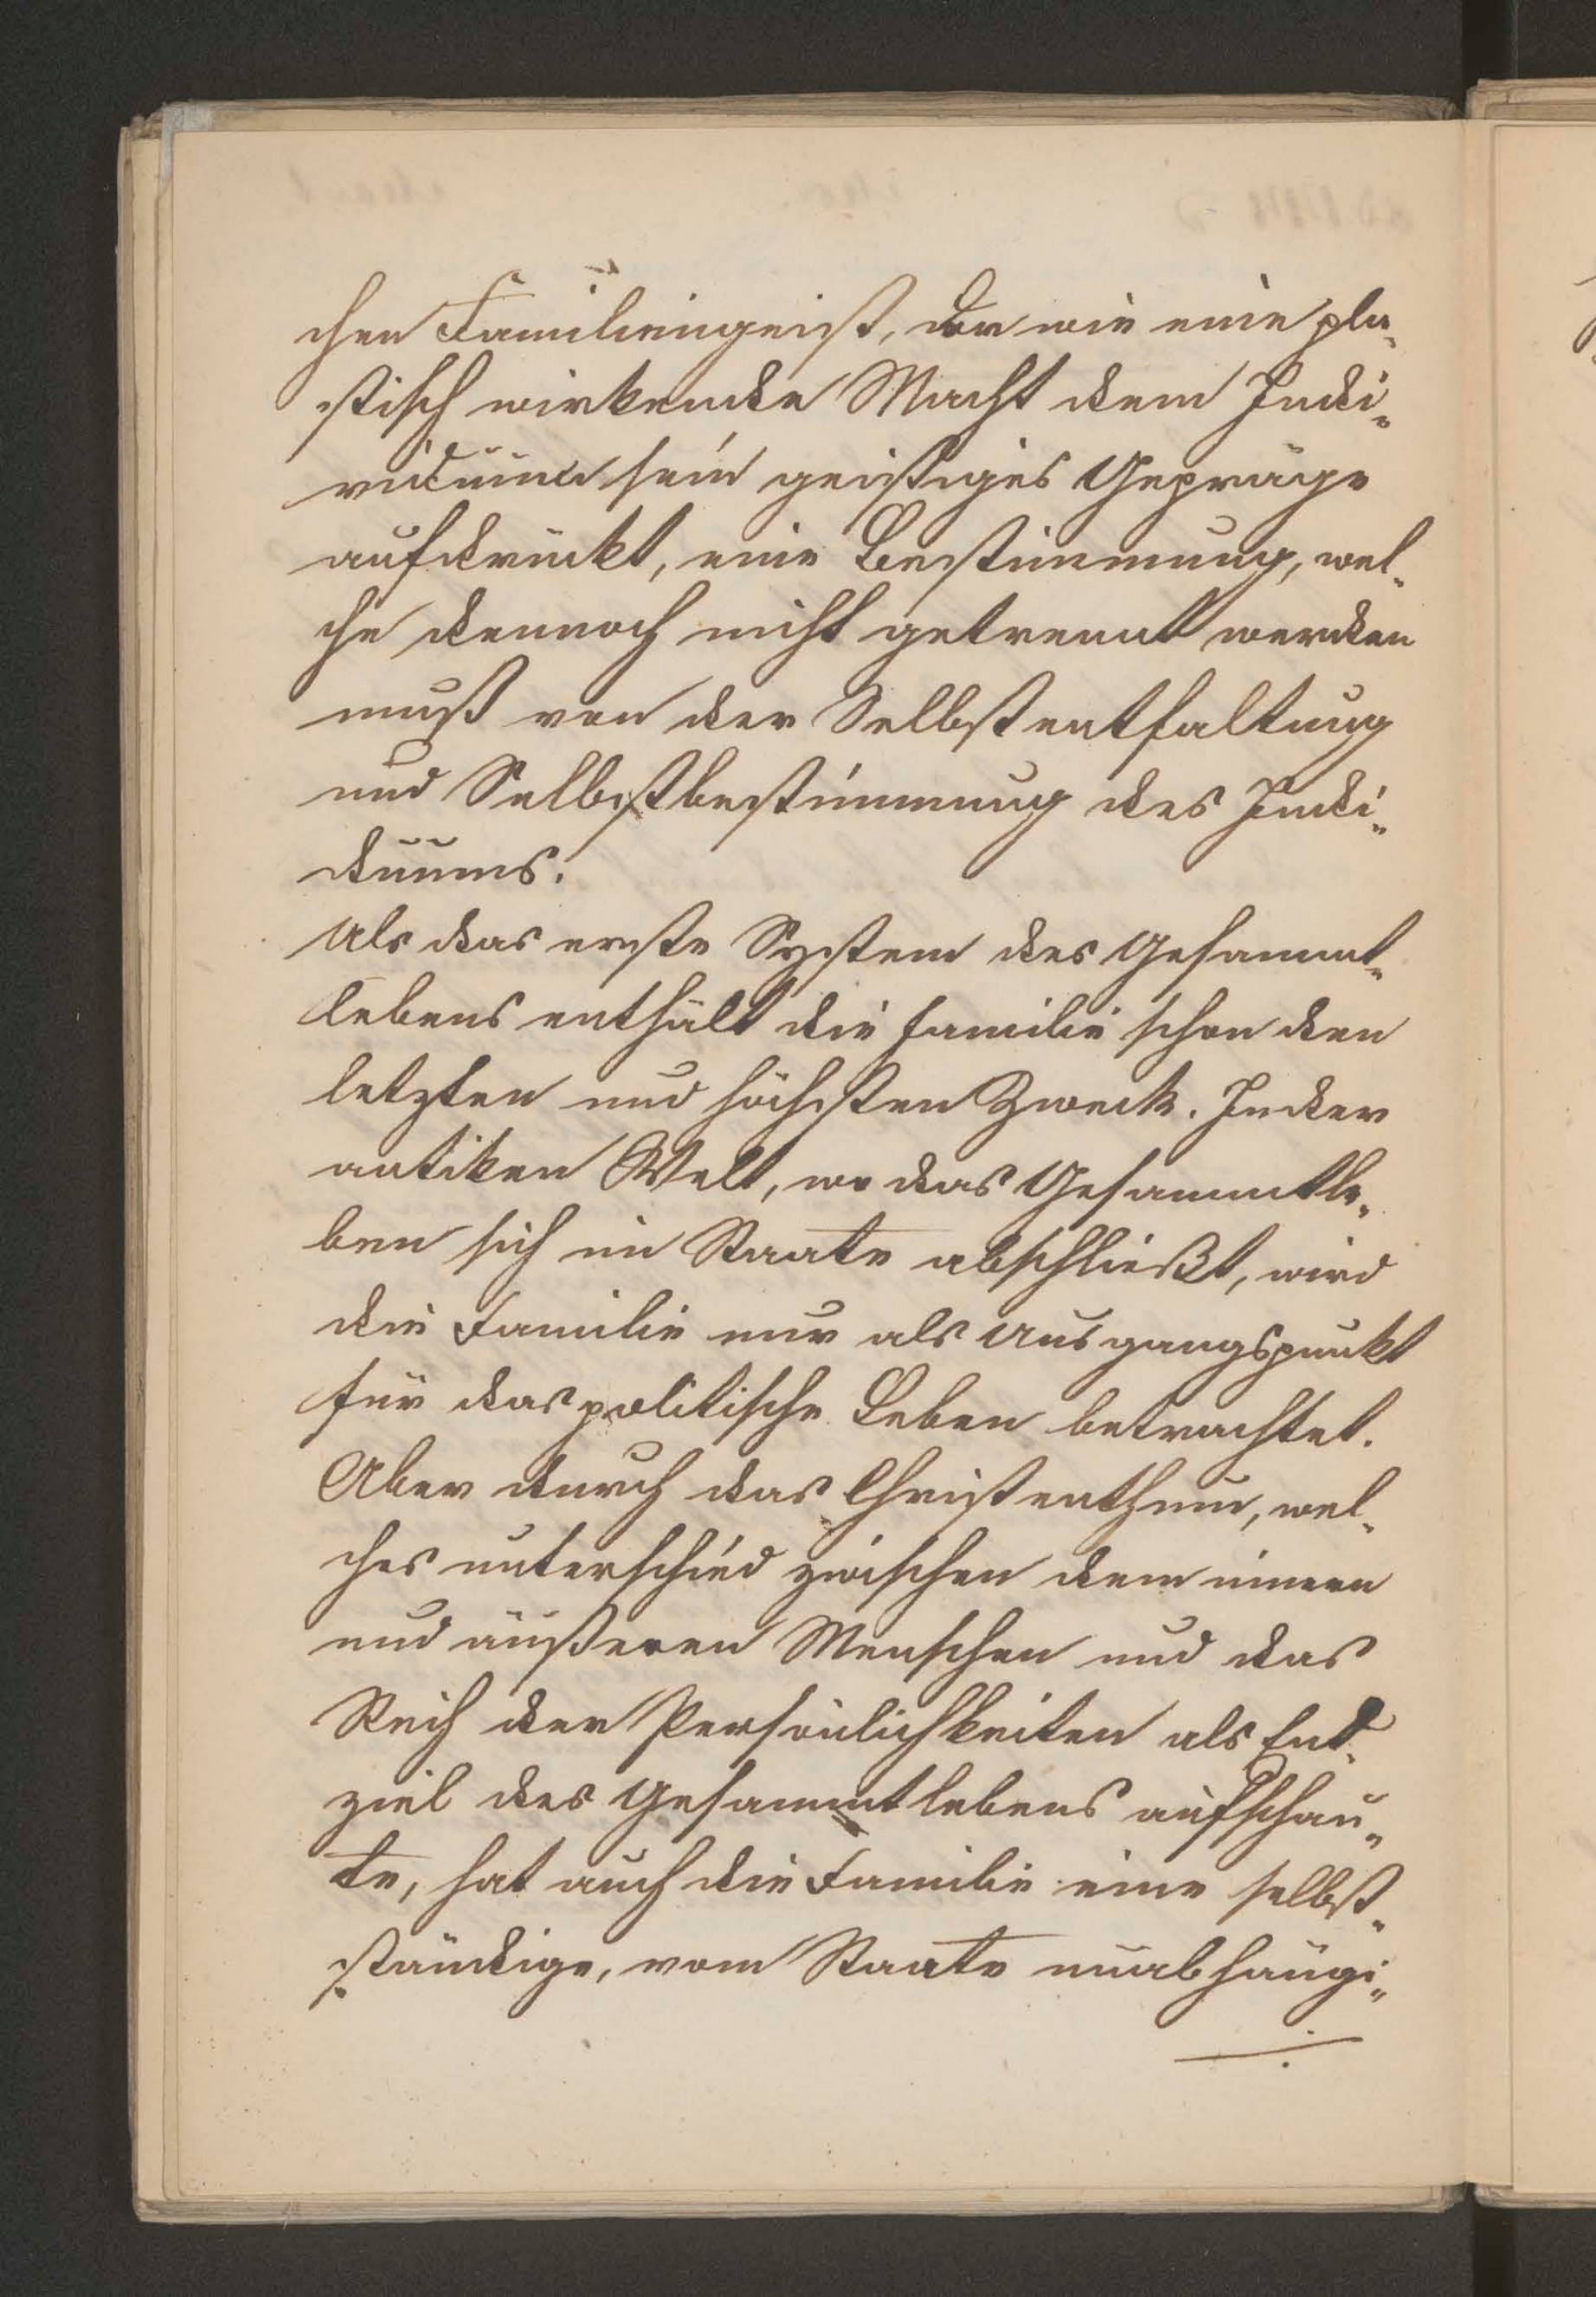 chen Familiengeist, der wie eine pla-
stisch wirkende Macht dem Indi-
viduum sein geistiges Gepräge
aufdrückt, eine Bestimmung, wel-
che dennoch nicht getrennt werden
muß von der Selbstentfaltung
und Selbstbestimmung des Indi-
duums.
Als das erste System des Gesammt-
lebens enthält die Familie schon den
letzten und höchsten Zweck. In der
antiken Welt, wo das Gesammtle-
ben sich im Staate abschließt, wird
die Familie nur als Ausgangspunkt
für das politische Leben betrachtet.
Aber durch das Christenthum, wel-
ches unterschied zwischen dem innern
und äußeren Menschen und das
Reich der Persönlichkeiten als End-
ziel des Gesammtlebens aufschau-
te, hat auch die Familie eine selbst-
ständige, vom Staate unabhängi-